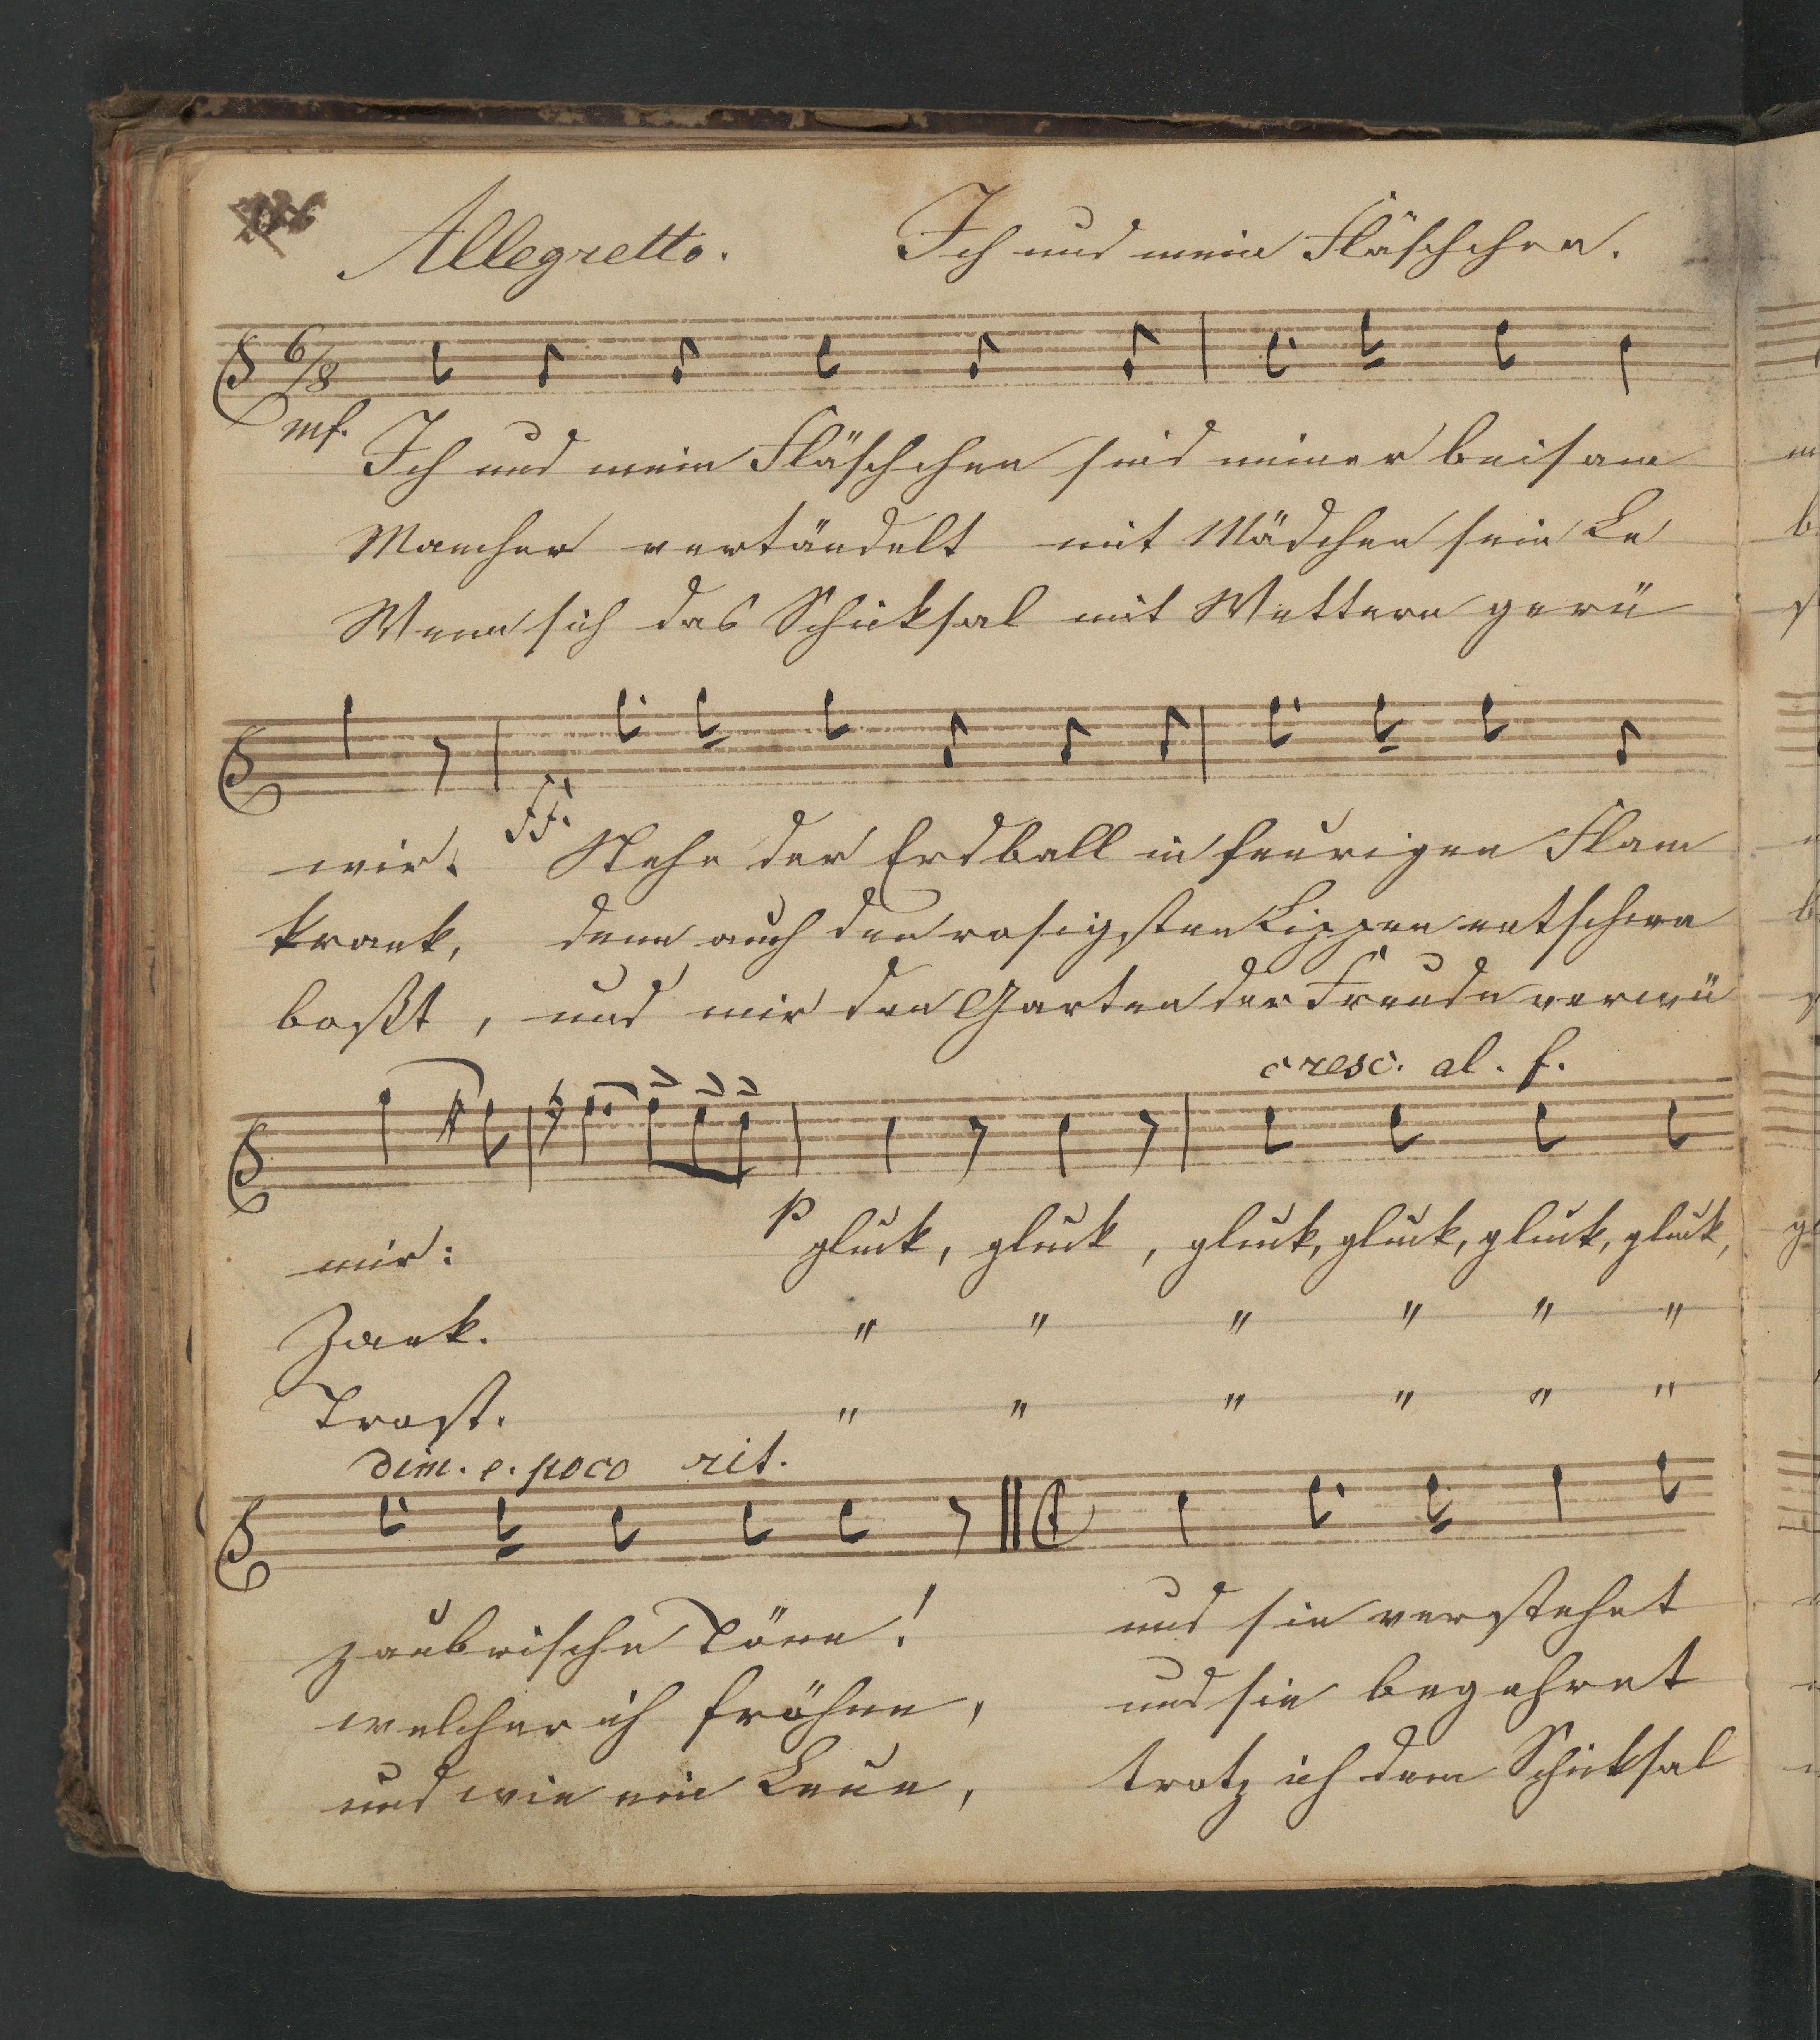 Allegretto. Ich und mein Fläschchen.
6/8
mf. Ich und mein Fläschchen sind immer beisam
Mancher vertändelt mit Mädchen sein Le
Wenn sich das Schicksal mit Wettern gerü
ff.
wir. Stehe der Erdball in feurigen Flam
krank, denn auch den rosigsten Lippen entschwe
boßt, und mir den Garten der Freude verwü
cresc. al. f.
p
mir: gluck, gluck, gluck, gluck, gluck, gluck,
Zank. " " " " " "
Trost. " " " " " "
dim. e. poco rit.
zaubrische Töne! und sie verstehet
welcher ich fröhne, und sie begehret
und wie ein Leue, trotz ich dem Schicksal